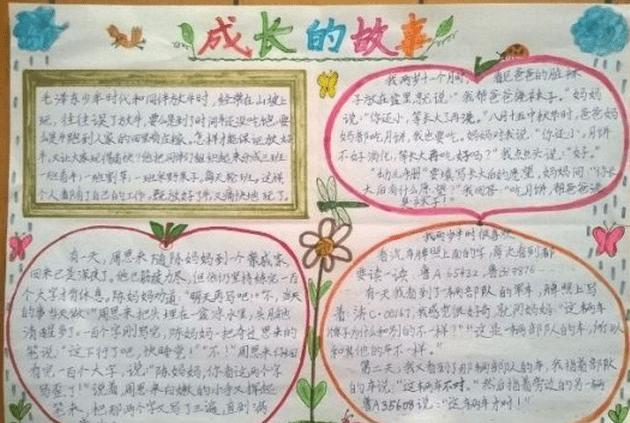 成长的故事
毛泽东少年时代和同伴放牛时,经常在山坡上
玩,往往误了放牛,要么是到了时间还没吃饱,要
么是牛跑到人家的田里偷庄稼。怎样才能保证放好
牛,又让大家玩得痛快?他把同伴们组织起来分成三班
一班看牛,一班割草,一班采野果子,每天轮班。这样
个人都有了自己的工作,既放好了牛,又痛快地玩了。
我两岁十个月时,看见爸爸的脏袜
子放在盆里,就说:“我帮爸爸洗袜子。”妈妈
说:“你还小,等长大了再洗。”八月十五中秋节时,爸爸妈
妈都吃月饼,我也要吃。妈妈对我说:“你还小,月饼
不好消化,等长大再吃,好吗?”我点点头说:“好。”
“幼儿手册”要填写长大后的愿望,妈妈问:“你长
大后有什么愿望?”我回答:“吃月饼,帮爸爸洗
臭袜子!”
有一天,周恩来随陈妈妈到一个亲戚家,
回来已是深夜了。他已筋疲力尽,但他仍坚持练完一百
个大字才休息。陈妈妈劝道:“明天再写吧!”“不,当天
的事当天做!”周恩来把头埋在一盆凉水里,头脑他
清醒多了。一百个字刚写完,陈妈妈一把夺过恩来的
笔说:“这下行了吧,快睡觉!”“不!”周恩来仔细
看完一百个大字,说:“陈妈妈,你看这两个字
写歪了!”说着,周恩来白嫩的小手又挥起
笔来,把那两个字又写了三遍,直到满
我两岁半时很喜欢
看汽车牌照上面的字,每次看到都
要读一读,鲁A65432、鲁
有一天我看到了一辆部队的军车,牌照上写
着:济C·00167,我感觉很好奇,就问妈妈:“这辆车
牌子为什么和别的不一样?”“这是一辆部队的车,所以
和其他的车不一样。”
第二天,我又看到了那辆部队的车,我指着部队
的车说:“这辆车不对。”然后指着旁边的另一辆
鲁A35608说:“这辆车才对!”